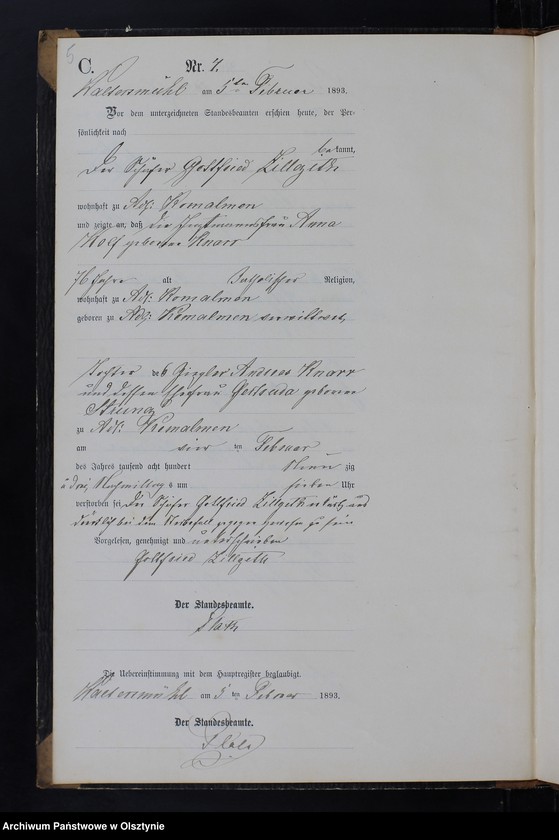 5
C.
Nr. 7.
Waltersmühl am 5ten Februar 1893.
Vor dem unterzeichneten Standesbeamten erschien heute, der Per-
sönlichkeit nach
bekannt,
der Schäfer Gottfried Zillgitt
wohnhaft zu Adl: Komalmen
und zeigte an, daß die Instmannsfrau Anna
Wolf geborene Knarr
76 Jahre alt katholischer Religion,
wohnhaft zu Adl: Komalmen
geboren zu Adl: Komalmen verwittwet,
Tochter des Andreas Knarr
und dessen Ehefrau geborene
zu Adl: Komalmen
am vier ten Februar
des Jahres tausend acht hundert Neun zig
u drei, Nachmittags um sieben Uhr
verstorben sei Der Schäfer Gottfried Zillgitt erklärt, und
bei dem Sterbefall zugegen gewesen zu sein
Vorgelesen, genehmigt und unterschrieben
Gottfried Zillgitt
Der Standesbeamte.
Die Uebereinstimmung mit dem Hauptregister beglaubigt.
Waltersmühl am 5 ten Februar 1893.
Der Standesbeamte.
Archiwum Państwowe w Olsztynie